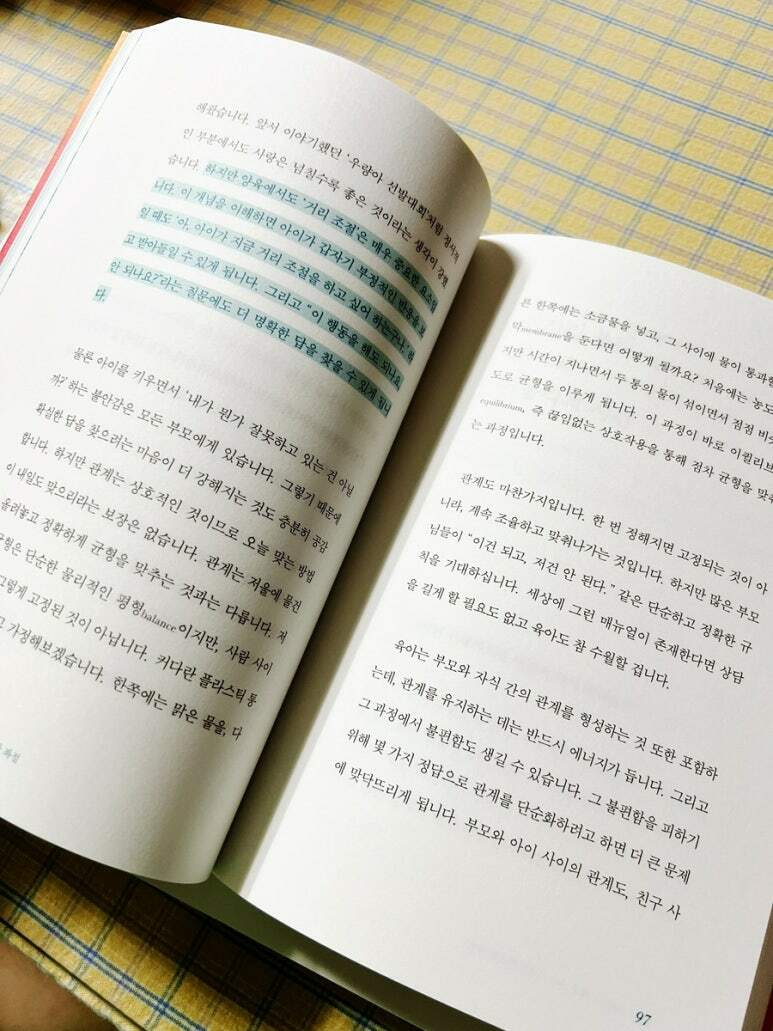 해왔습니다. 앞서 이야기했던 '우량아 선발대회'처럼 정서적
인 부분에서도 사랑은 넘칠수록 좋은 것이라는 생각이 강했
습니다. 하지만 양육에서도 '거리 조절'은 매우 중요한 요소입
니다. 이 개념을 이해하면 아이가 갑자기 부정적인 반응을 보
일 때도 '아, 아이가 지금 거리 조절을 하고 싶어 하는구나.' 하
고 받아들일 수 있게 됩니다. 그리고 "이 행동을 해도 되나요,
안 되나요?"라는 질문에도 더 명확한 답을 찾을 수 있게 됩니
다.
물론 아이를 키우면서 '내가 뭔가 잘못하고 있는 건 아닐
까?' 하는 불안감은 모든 부모에게 있습니다. 그렇기 때문에
확실한 답을 찾으려는 마음이 더 강해지는 것도 충분히 공감
합니다. 하지만 관계는 상호적인 것이므로 오늘 맞는 방법
이 내일도 맞으리라는 보장은 없습니다. 관계는 저울에 물건
올려놓고 정확하게 균형을 맞추는 것과는 다릅니다. 저
균형은 단순한 물리적인 평형balance이지만, 사람 사이
그렇게 고정된 것이 아닙니다. 커다란 플라스틱 통
고 가정해보겠습니다. 한쪽에는 맑은 물을, 다
른 한쪽에는 소금물을 넣고, 그 사이에 물이 통과할
막membrane을 둔다면 어떻게 될까요? 처음에는 농도
지만 시간이 지나면서 두 통의 물이 섞이면서 점점 비슷
도로 균형을 이루게 됩니다. 이 과정이 바로 이퀼리브
equilibrium, 즉 끊임없는 상호작용을 통해 점차 균형을 맞춰
는 과정입니다.
관계도 마찬가지입니다. 한 번 정해지면 고정되는 것이 아
니라, 계속 조율하고 맞춰나가는 것입니다. 하지만 많은 부모
님들이 "이건 되고, 저건 안 된다." 같은 단순하고 정확한 규
칙을 기대하십니다. 세상에 그런 매뉴얼이 존재한다면 상담
을 길게 할 필요도 없고 육아도 참 수월할 겁니다.
육아는 부모와 자식 간의 관계를 형성하는 것 또한 포함하
는데, 관계를 유지하는 데는 반드시 에너지가 듭니다. 그리고
그 과정에서 불편함도 생길 수 있습니다. 그 불편함을 피하기
위해 몇 가지 정답으로 관계를 단순화하려고 하면 더 큰 문제
에 맞닥뜨리게 됩니다. 부모와 아이 사이의 관계도, 친구 사
97